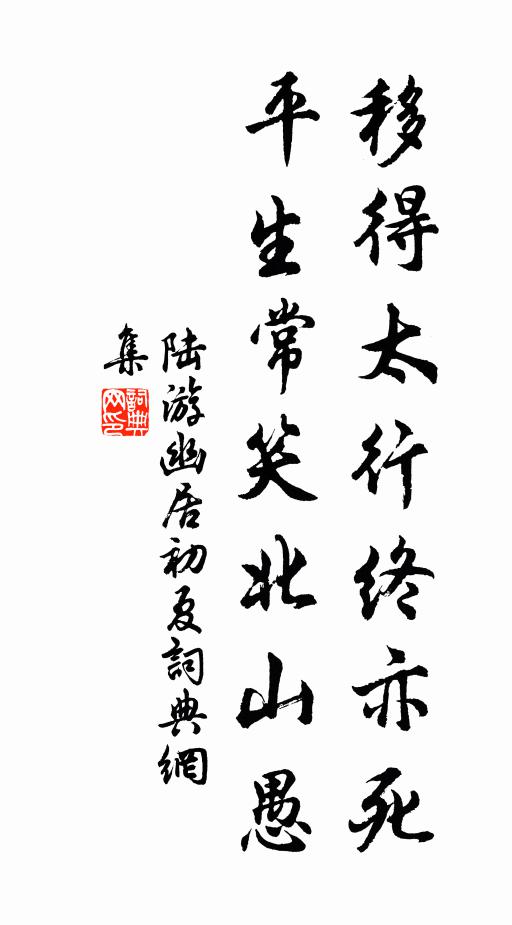 移得太行终亦死
平生常笑北山愚
陆游幽居初夏詞典網
集
詞典
网印